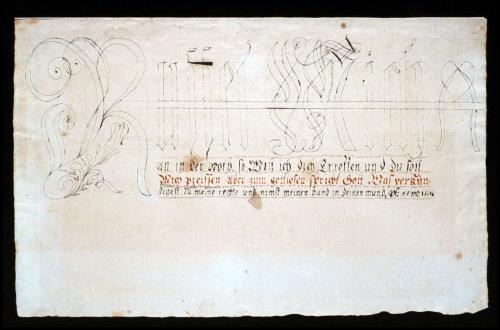 Ruffet Mich
an in der Noth, so Will ich dich Erretten und du solt
Mich preissen aber zum gottlosen spricht Gott Was verkün-
digest du meine rechte und nimst meinen bund in deinen mund,